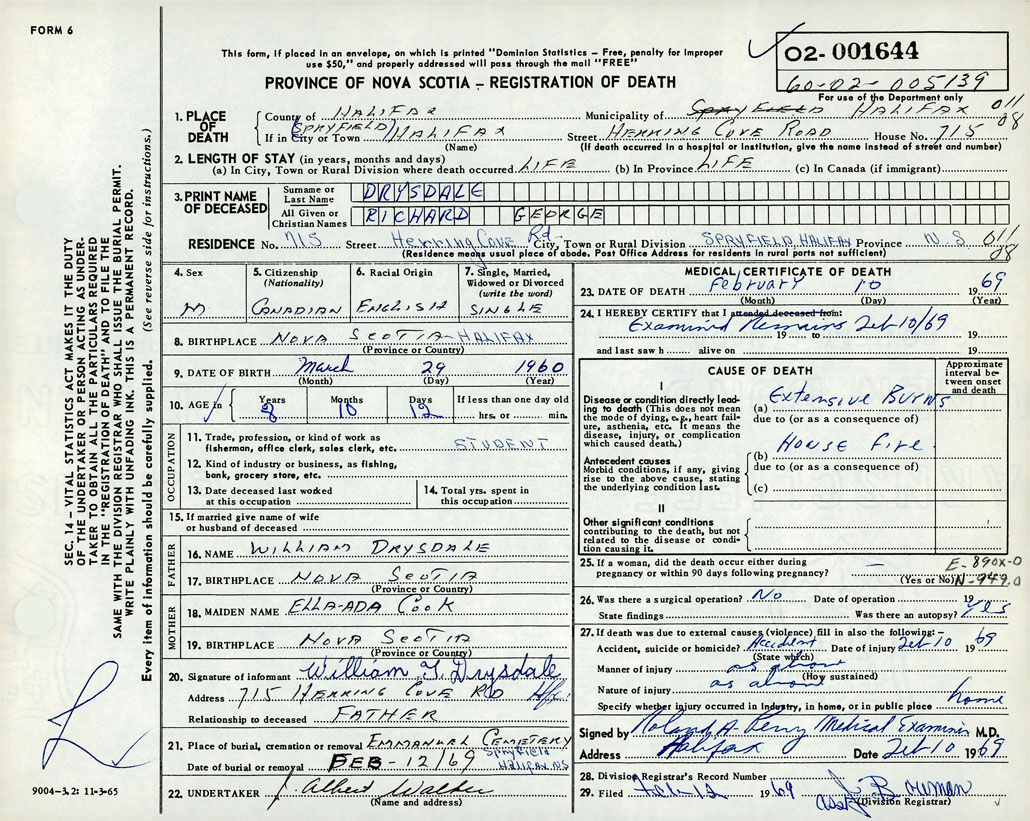 FORM 6
This form, if placed in an envelope, on which is printed "Dominion Statistics – Free, penalty for improper
use $50," and properly addressed will pass through the mail "FREE"
PROVINCE OF NOVA SCOTIA – REGISTRATION OF DEATH
02-001644
60-02-005139
For use of the Department only
1. PLACE OF DEATH
County of HALIFAX Municipality of SPRYFIELD HALIFAX 011/08
If in City or Town (SPRYFIELD) HALIFAX Street HERRING COVE ROAD House No. 715
(Name) (If death occurred in a hospital or institution, give the name instead of street and number)
2. LENGTH OF STAY (in years, months and days)
(a) In City, Town or Rural Division where death occurred LIFE (b) In Province LIFE (c) In Canada (if immigrant)
3. PRINT NAME OF DECEASED
Surname or Last Name DRYSDALE
All Given or Christian Names RICHARD GEORGE
RESIDENCE No. 715 Street Herring Cove Rd. City, Town or Rural Division SPRYFIELD, HALIFAX Province N.S 011/08
(Residence means usual place of abode. Post Office Address for residents in rural parts not sufficient)
4. Sex
M
5. Citizenship
(Nationality)
CANADIAN
6. Racial Origin
ENGLISH
7. Single, Married,
Widowed or Divorced
(write the word)
SINGLE
8. BIRTHPLACE NOVA SCOTIA - HALIFAX
(Province or Country)
9. DATE OF BIRTH March 29 1960
(Month) (Day) (Year)
10. AGE in Years Months Days If less than one day old
8 10 12 hrs. or min.
OCCUPATION
11. Trade, profession, or kind of work as
fisherman, office clerk, sales clerk, etc. STUDENT
12. Kind of industry or business, as fishing,
bank, grocery store, etc.
13. Date deceased last worked
at this occupation
14. Total yrs. spent in
this occupation
15. If married give name of wife
or husband of deceased
FATHER
16. NAME WILLIAM DRYSDALE
17. BIRTHPLACE NOVA SCOTIA
(Province or Country)
MOTHER
18. MAIDEN NAME ELLA-ADA COOK
19. BIRTHPLACE NOVA SCOTIA
(Province or Country)
20. Signature of informant William Drysdale
Address 715 HERRING COVE RD Hfx.
Relationship to deceased FATHER
21. Place of burial, cremation or removal EMMANUAL CEMETERY
SPRYFIELD
Date of burial or removal FEB-12/69 HALIFAX NS
22. UNDERTAKER J. Albert Walker
(Name and address)
MEDICAL CERTIFICATE OF DEATH
23. DATE OF DEATH February 10 1969
(Month) (Day) (Year)
24. I HEREBY CERTIFY that I attended deceased from:
Examined Remains Feb 10/69
19 to 19
and last saw h alive on 19
CAUSE OF DEATH
Approximate
interval be-
tween onset
and death
I
Disease or condition directly lead-
ing to death (This does not mean
the mode of dying, e.g., heart fail-
ure, asthenia, etc. It means the
disease, injury, or complication
which caused death.)
(a) Extensive Burns
due to (or as a consequence of)
House Fire
Antecedent causes
Morbid conditions, if any, giving
rise to the above cause, stating
the underlying condition last.
(b)
due to (or as a consequence of)
(c)
II
Other significant conditions
contributing to the death, but not
related to the disease or condi-
tion causing it.
25. If a woman, did the death occur either during
pregnancy or within 90 days following pregnancy? —
(Yes or No)
E-890X-0
N-949.0
26. Was there a surgical operation? No Date of operation 19
State findings Was there an autopsy? Yes
27. If death was due to external causes (violence) fill in also the following:-
Accident, suicide or homicide? Accident Date of injury Feb 10 1969
(State which)
Manner of injury as above
(How sustained)
Nature of injury as above
Specify whether injury occurred in industry, in home, or in public place home
Signed by Roland A. Perry Medical Examiner M.D.
Address Halifax Date Feb 10 1969
28. Division Registrar's Record Number
29. Filed Feb-12 1969 J. Bowman
Asst (Division Registrar)
SEC. 14 – VITAL STATISTICS ACT MAKES IT THE DUTY
OF THE UNDERTAKER OR PERSON ACTING AS UNDER-
TAKER TO OBTAIN ALL THE PARTICULARS REQUIRED
IN THE "REGISTRATION OF DEATH" AND TO FILE THE
SAME WITH THE DIVISION REGISTRAR WHO SHALL ISSUE THE BURIAL PERMIT.
WRITE PLAINLY WITH UNFADING INK. THIS IS A PERMANENT RECORD.
Every item of information should be carefully supplied. (See reverse side for instructions.)
9004-3.2: 11-3-65